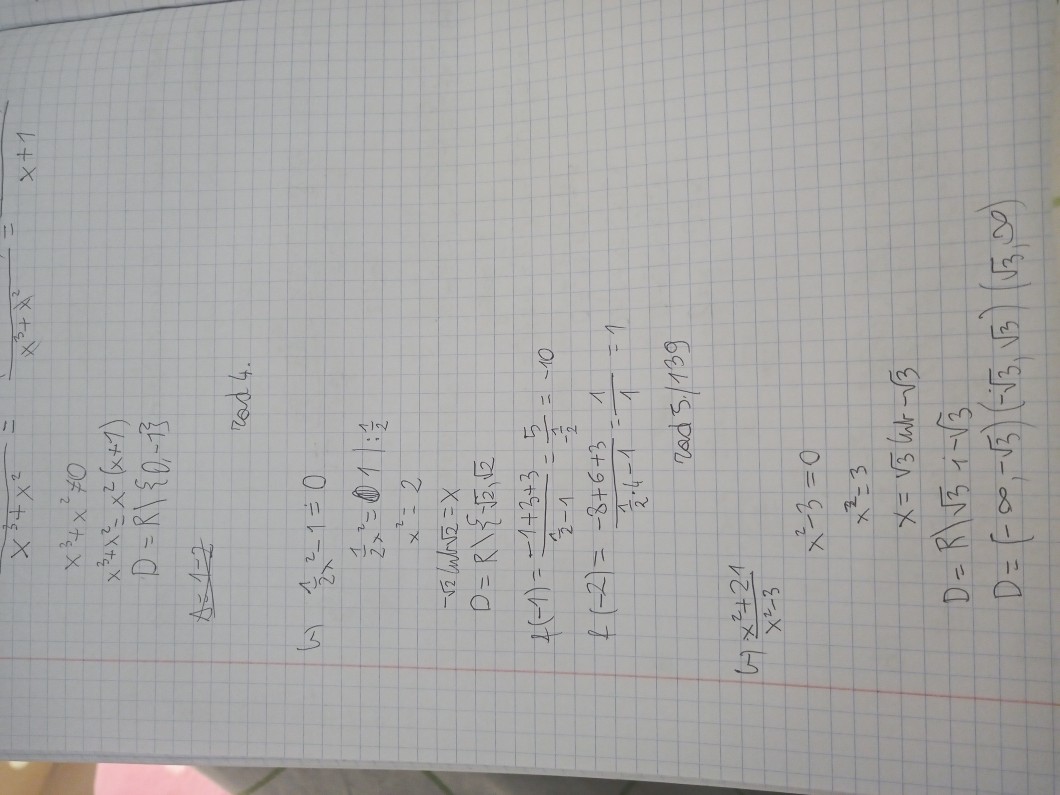 x³+x² = x³+x² = x+1
x³+x²≠0
x³+x²=x²(x+1)
D=R\{0,-1}
zad 4.
b) ½x²-1=0
½x²=1 |:½
x²=2
-√2 lub √2=x
D=R\{-√2,√2}
f(-1)=\frac{-1+3+3}{½-1}=\frac{5}{-½}=-10
f(-2)=\frac{-8+6+3}{½·4-1}=\frac{1}{1}=1
zad 5./139
b) \frac{x²+21}{x²-3}
x²-3=0
x²=3
x=√3 lub -√3
D=R\√3 i -√3
D=(-∞,-√3)(-√3,√3)(√3,∞)